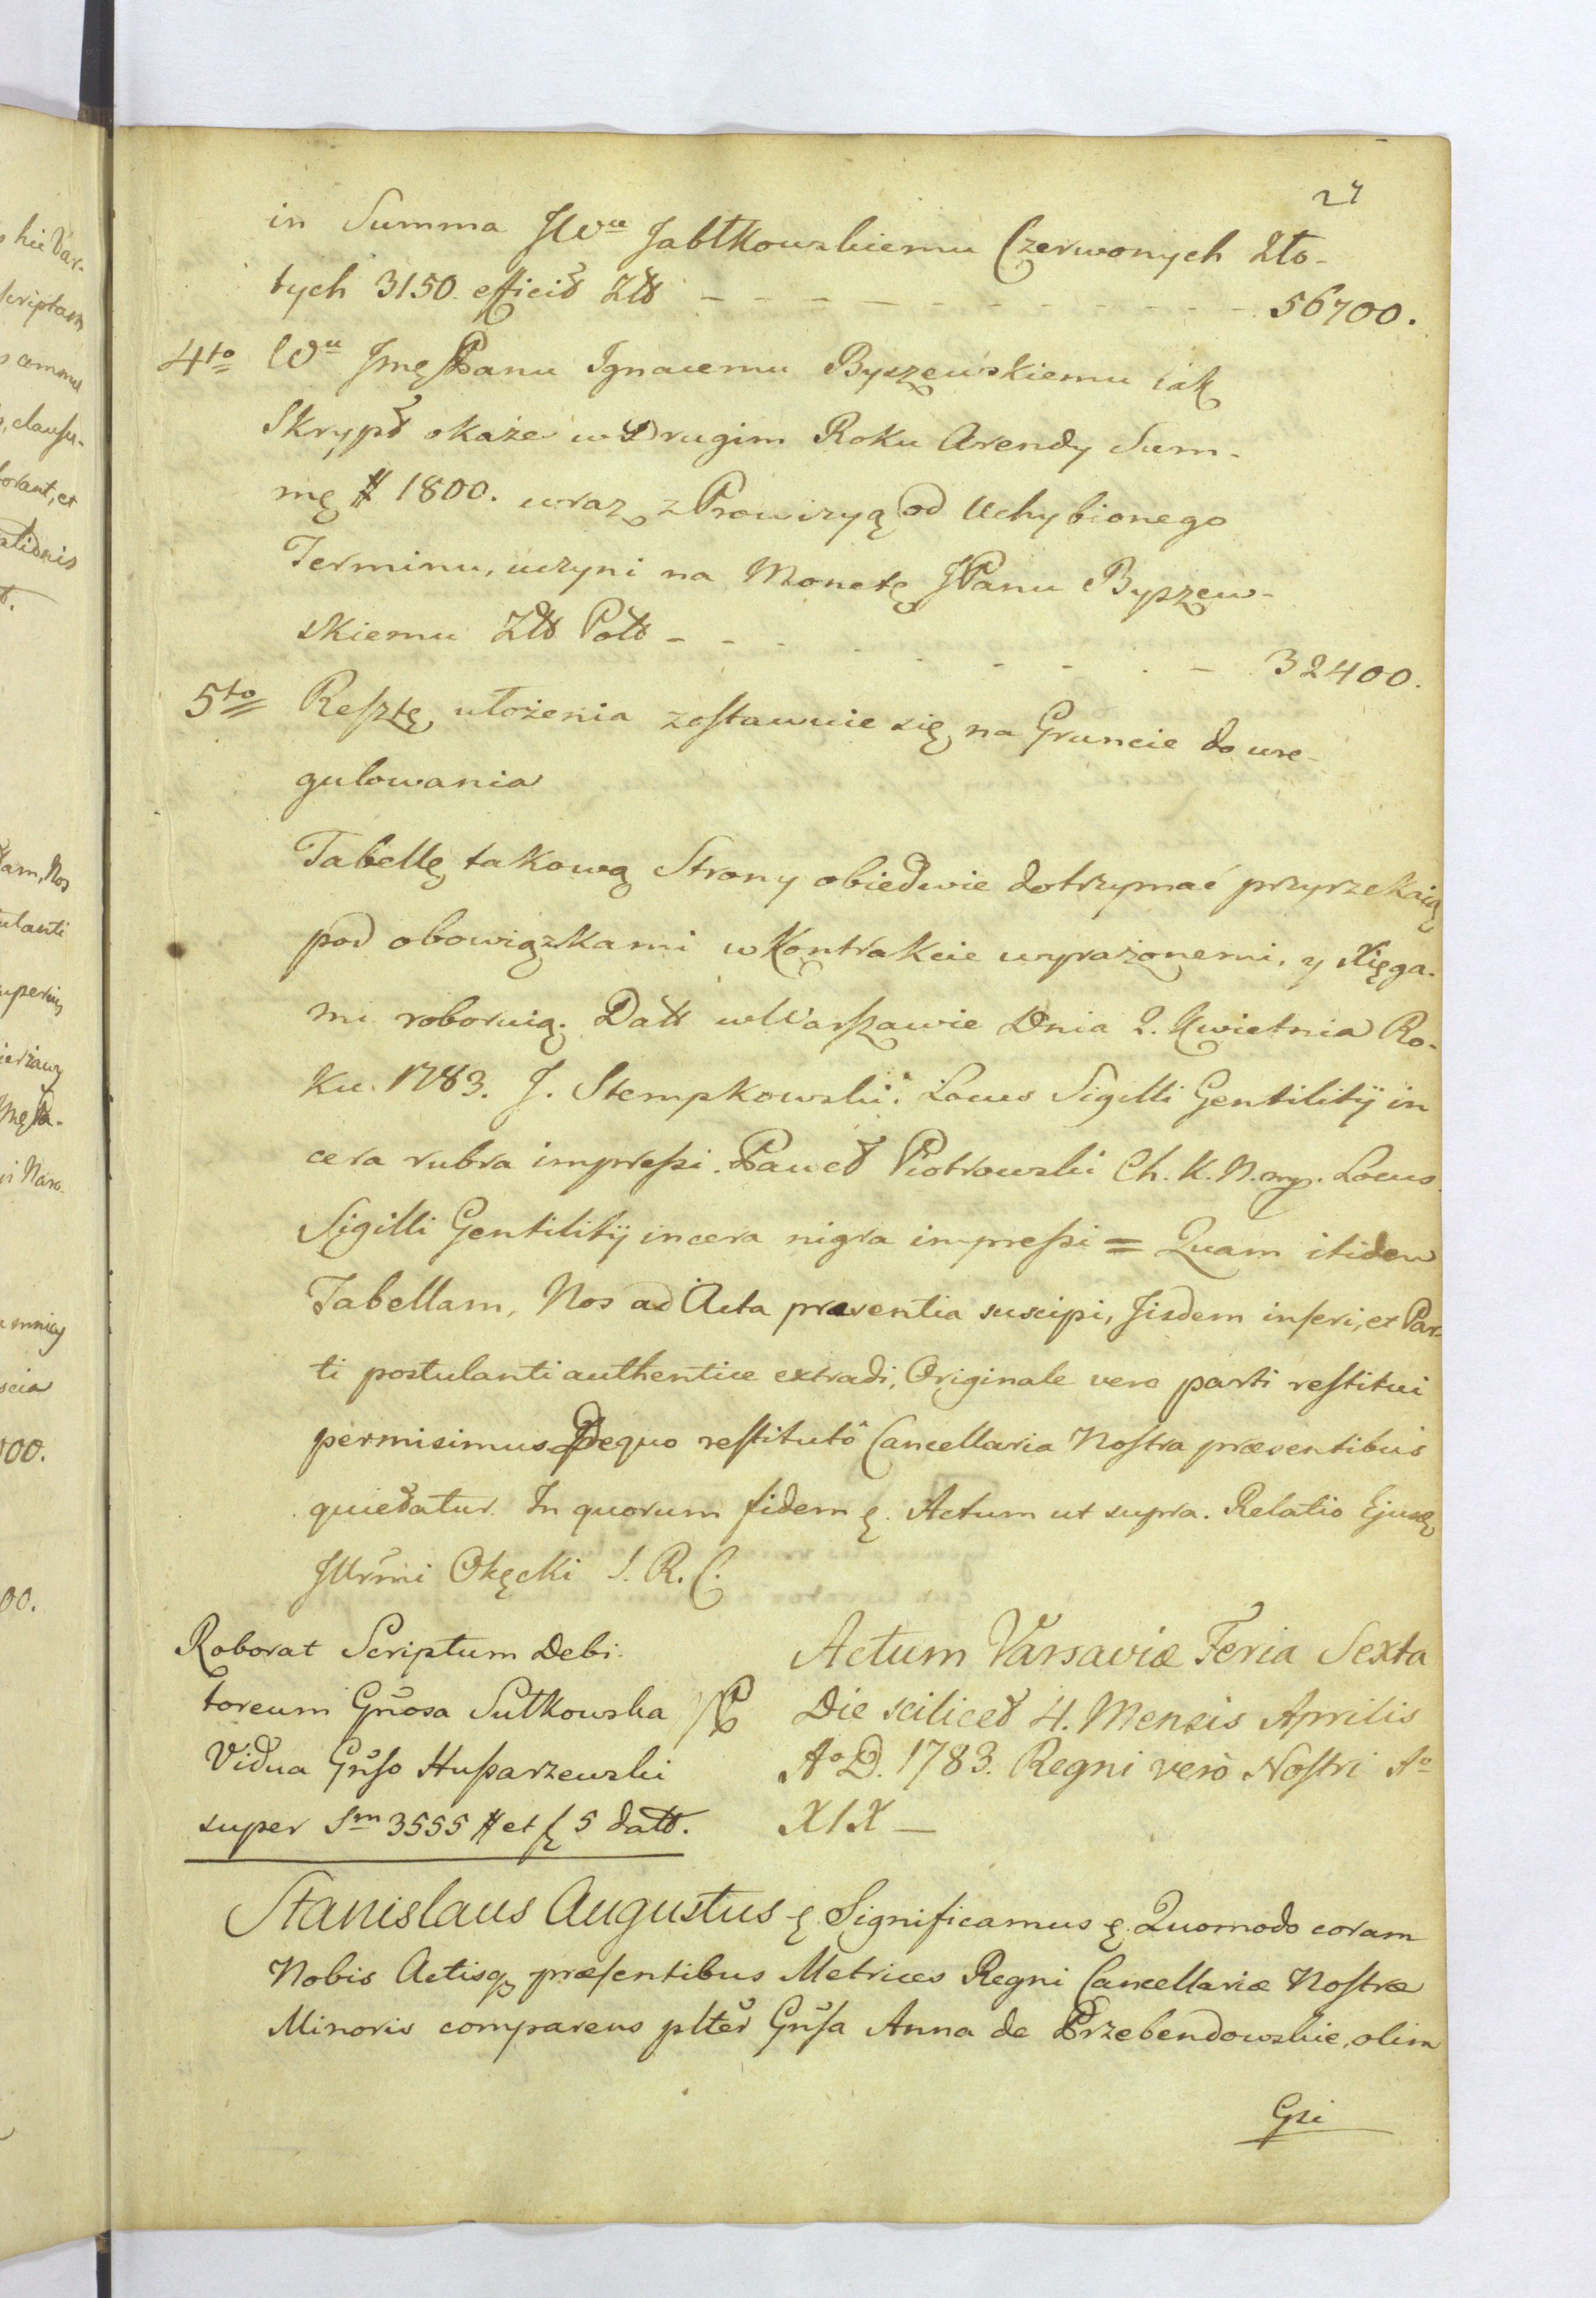 27
in Summa JWu Jabłkowskiemu Czerwonych Zło-
tych 3150. efficit Złł - - - - - - - - - - - 56700.
4to Wu Jmę Panu Ignacemu Byszewskiemu iak
Skrypt okaże w Drugim Roku Arendy Sum-
mę # 1800. wraz z Prowizyą od Uchybionego
Terminu, uczyni na Monetę JPanu Byszew-
skiemu Złł Poll - - - - - - - - 32400.
5to Resztę ułożenia zostawuie się na Gruncie do ure-
gulowania
Tabellę takową Strony obiedwie dotrzymać przyrzekaią
pod obowiązkami w Kontrakcie wyrażonemi, y Xięga-
mi roboruią. Datt w Warszawie Dnia 2. Kwietnia Ro-
ku. 1783. J. Stempkowski. Locus Sigilli Gentilitÿ in
cera rubra impressi. Paweł Piotrowski Ch. K. N. mp. Locus
Sigilli Gentilitÿ in cera nigra impressi = Quam itidem
Tabellam, Nos ad Acta præsentia suscipi, Jisdem inseri, et Par-
ti postulanti authentice extradi, Originale vero parti restitui
permisimus De quo restitutô Cancellaria Nostra præsentibus
quietatur. In quorum fidem ę. Actum ut supra. Relatio Ejusdę
Jllrm̃i Okęcki S. R. C.
Roborat Scriptum Debi-
toreum Gñosa Sułkowska
Vidua Gñso Huszarzewski
super Sm 3555 # et f 5 datt.
Actum Varsaviæ Feria Sexta
Die scilicet 4. Mensis Aprilis
Ao D. 1783. Regni verò Nostri Ao
XIX —
Stanislaus Augustus ę. Significamus ę. Quomodo coram
Nobis Actisq præsentibus Metrices Regni Cancellariæ Nostræ
Minoris comparens pltẽr Gñsa Anna de Przebendowskie, olim
Gsi